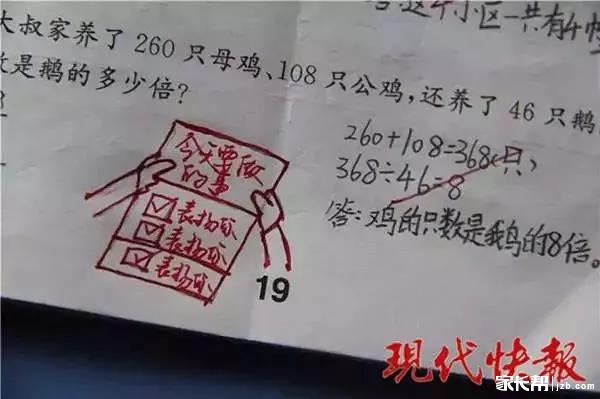 这个小区一共有4幢
大叔家养了 260 只母鸡、108 只公鸡，还养了 46 只鹅
数是鹅的多少倍？
260+108=368(只)
368÷46=8
答：鸡的只数是鹅的8倍。
今天要做
的事
表扬你
表扬你
表扬你
19
现代快報
家长帮 jzb.com